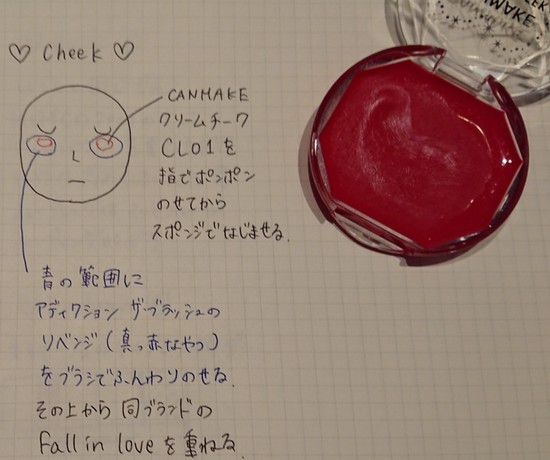 ♡ Cheek ♡
CANMAKE
クリームチーク
CL01を
指でポンポン
のせてから
スポンジでなじませる.
青の範囲に
アディクション ザ・ブラッシュの
リベンジ(真っ赤なやつ)
をブラシでふんわりのせる.
その上から同ブランドの
Fall in loveを重ねる.
CANMAKE